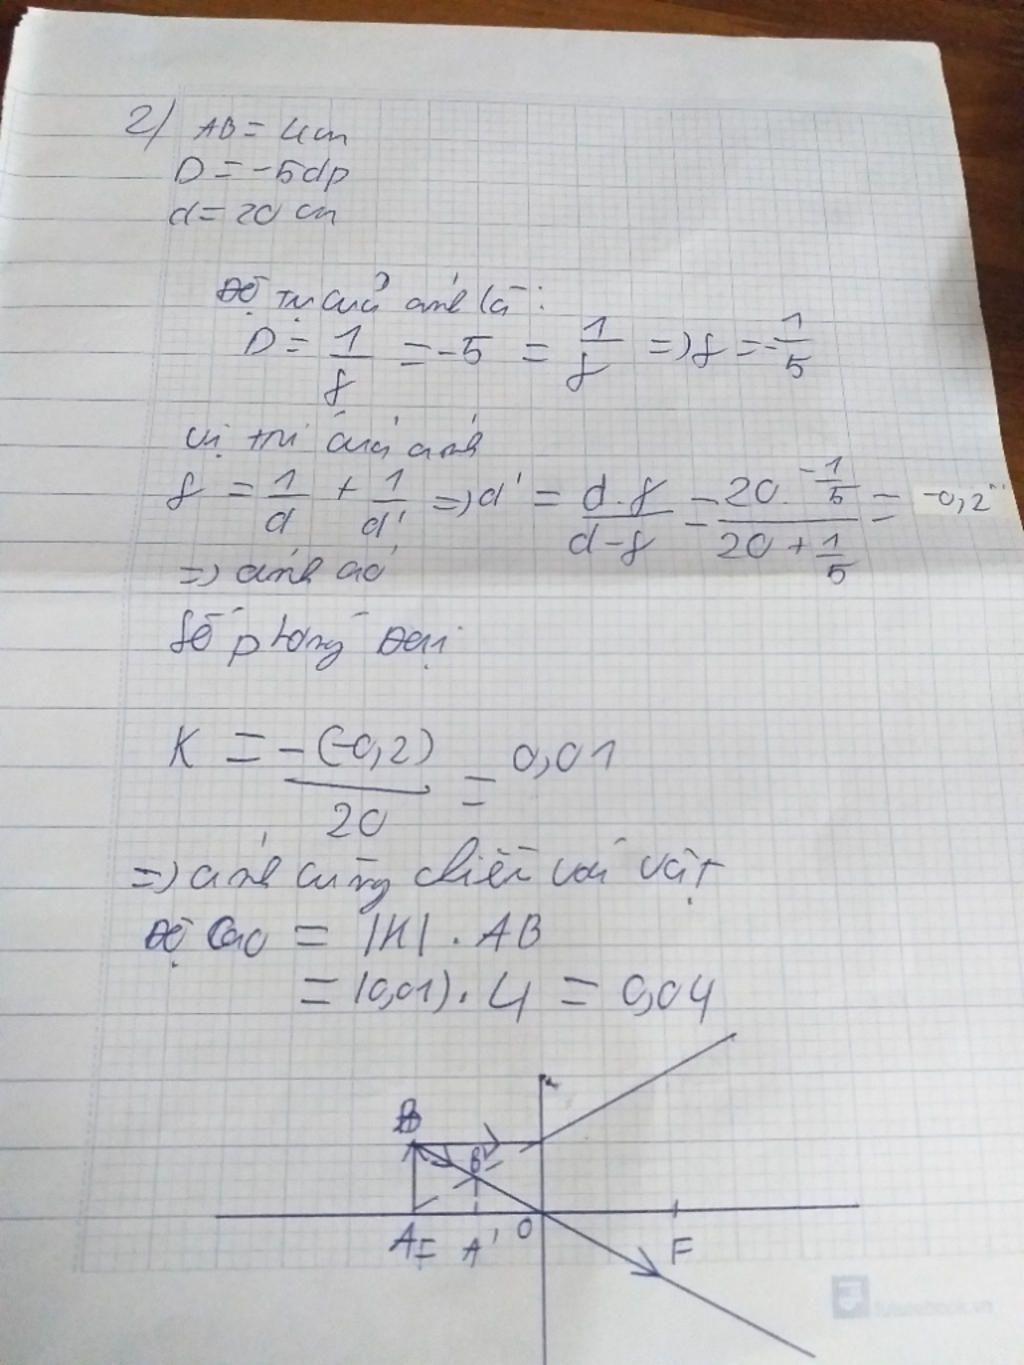 2) AB = 4cm
D = -5dp
d = 20 cm
Độ tụ của ảnh là:
D = 1/f = -5 = 1/f => f = -1/5
vị trí của ảnh
f = 1/d + 1/d' => d' = d.f/d-f = 20.-1/5/20+1/5 = -0,2
=> ảnh ảo
Số phóng Đại
K = -(-0,2)/20 = 0,01
=> ảnh cùng chiều với vật
Độ Cao = |K| . AB
= |0,01| . 4 = 0,04
B
B'
A F A' O F